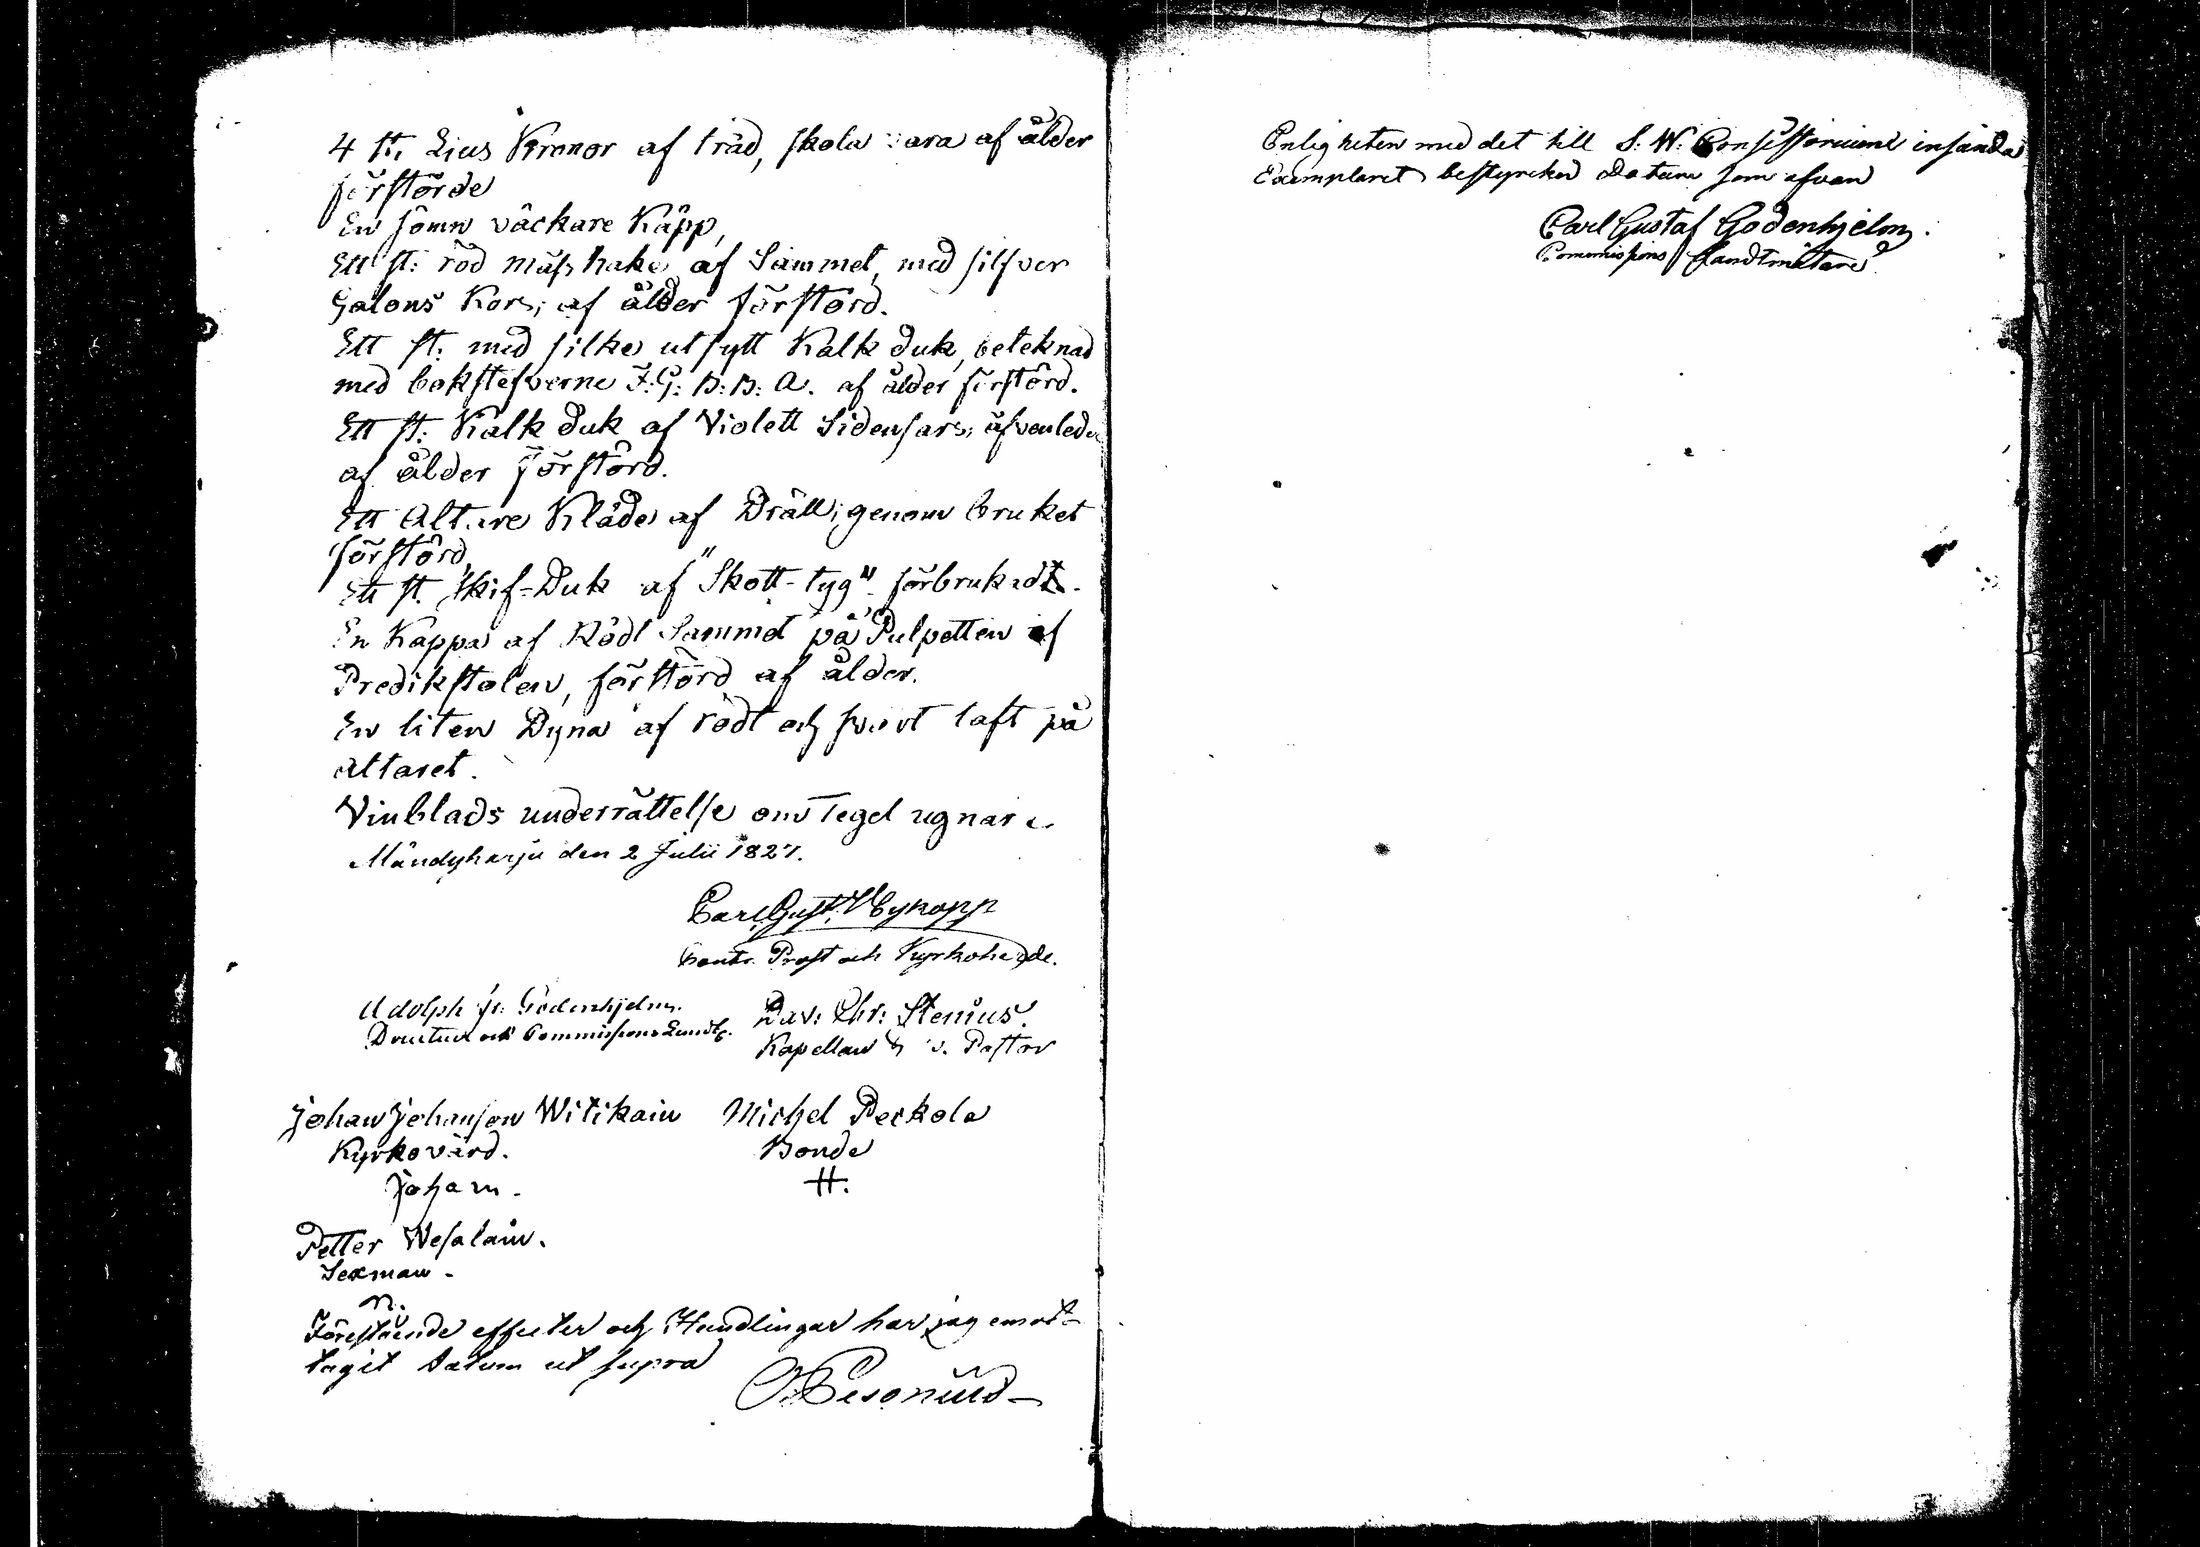 4 st. Ljus Kronor af träd, skola vara af ålder
förstörde
En sömn väckare Käpp,
Ett st: röd mäss hake af Sammet, med silfver
Galons Kors; af ålder förstörd.
Ett st: med silke utsytt Kalk duk, beteknad
med bokstefverne J: G: B: B: A. af ålder förstörd.
Ett st: Kalk duk af Violett Sidensars; äfvenledes
af ålder förstörd.
Ett Altare Kläde af Dräll; genom bruket
förstörd,
Ett st. Skif-Duk af "Skott-tyg" förbrukadt.
En Kappa af Rödt Sammet på Pulpetten af
Predikstolen, förstörd af ålder.
En liten Dyna af rödt och svart taft på
altaret.
Vinblads underrättelse om Tegel ugnar
Mändyharju den 2 Julii 1827.
Carl Gust. Wykopp
Contr. Prost och Kyrkoherde.
Adolph Fr: Godenhjelm.
Director och Commissions Landtm.
Dav: Chr: Stenius.
Kapellan & v. Pastor
Johan Johansson Witikain Michel Peckola
Kyrkovärd. Bonde
Johan. H.
Petter Wesalain.
Sexman.
n.
Förestående effecter och Handlingar har jag emot-
tagit datum ut supra
Enligheten med det till S: W: Consistorium insända
Exemplaret bestyrcker Datum som ofvan
Carl Gustaf Godenhjelm.
Commissions Landtmätare